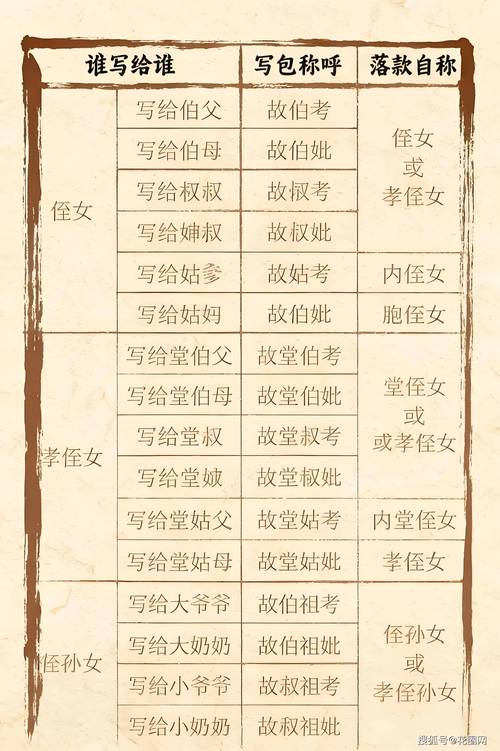 谁写给谁 写包称呼 落款自称
侄女
写给伯父 故伯考
写给伯母 故伯妣
写给叔叔 故叔考
写给婶叔 故叔妣
侄女
或
孝侄女
写给姑爹 故姑考 内侄女
写给姑妈 故伯妣 胞侄女
孝侄女
写给堂伯父 故堂伯考
写给堂伯母 故堂伯妣
写给堂叔 故堂叔考
写给堂 故堂叔妣
堂侄女
或
或孝侄女
写给堂姑父 故堂姑考 内堂侄女
写给堂姑母 故堂姑妣 孝侄女
侄孙女
写给大爷爷 故伯祖考
写给大奶奶 故伯祖妣
写给小爷爷 故叔祖考
写给小奶奶 故叔祖妣
侄孙女
或
孝侄孙女
搜狐号@花圈网